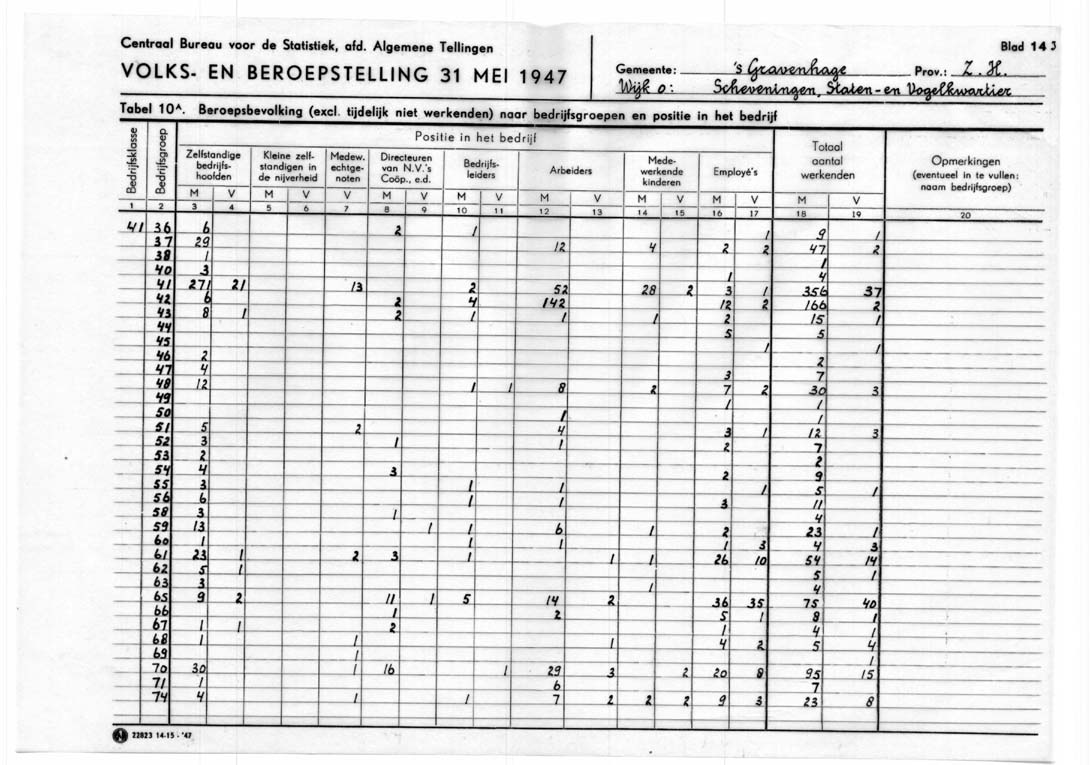 Centraal Bureau voor de Statistiek, afd. Algemene Tellingen
Blad 143
VOLKS- EN BEROEPSTELLING 31 MEI 1947
Gemeente: 's Gravenhage Prov.: Z. H.
Wijk o: Scheveningen, Staten- en Vogelkwartier
Tabel 10A. Beroepsbevolking (excl. tijdelijk niet werkenden) naar bedrijfsgroepen en positie in het bedrijf
Bedrijfsklasse
Bedrijfsgroep
Positie in het bedrijf
Zelfstandige bedrijfs-hoofden
Kleine zelf-standigen in de nijverheid
Medew. echtge-noten
Directeuren van N.V.'s Coöp., e.d.
Bedrijfs-leiders
Arbeiders
Mede-werkende kinderen
Employé's
Totaal aantal werkenden
Opmerkingen (eventueel in te vullen: naam bedrijfsgroep)
M V M V V M V M V M V M V M V M V
1 2 3 4 5 6 7 8 9 10 11 12 13 14 15 16 17 18 19 20
41 36 6 2 1 1 9 1
37 29 12 4 2 2 47 2
38 1 1
40 3 1 4
41 271 21 13 2 52 28 2 3 1 356 37
42 6 2 4 142 12 2 166 2
43 8 1 2 1 1 1 2 15 1
44 5 5
45 1 1
46 2 2
47 4 3 7
48 12 1 1 8 2 7 2 30 3
49 1 1
50 1 1
51 5 2 4 3 1 12 3
52 3 1 1 2 7
53 2 2
54 4 3 2 9
55 3 1 1 1 5 1
56 6 1 1 3 11
58 3 1 4
59 13 1 1 6 1 2 23 1
60 1 1 1 1 3 4 3
61 23 1 2 3 1 1 1 26 10 54 14
62 5 1 5 1
63 3 1 4
65 9 2 11 1 5 14 2 36 35 75 40
66 1 2 5 1 8 1
67 1 1 2 1 4 1
68 1 1 1 4 2 5 4
69 1 1
70 30 1 16 1 29 3 2 20 8 95 15
71 1 6 7
74 4 1 1 7 2 2 2 9 3 23 8
22823 14-15 - '47